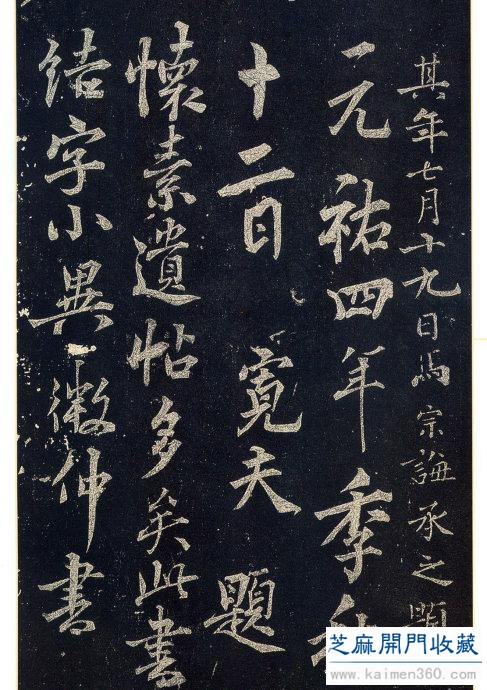 其年七月十九日馬宗誨承之題
元祐四年季秋
十二日寬夫題
懷素遺帖多矣此書
結字小異微仲書
芝麻開門收藏
www.kaimen360.com